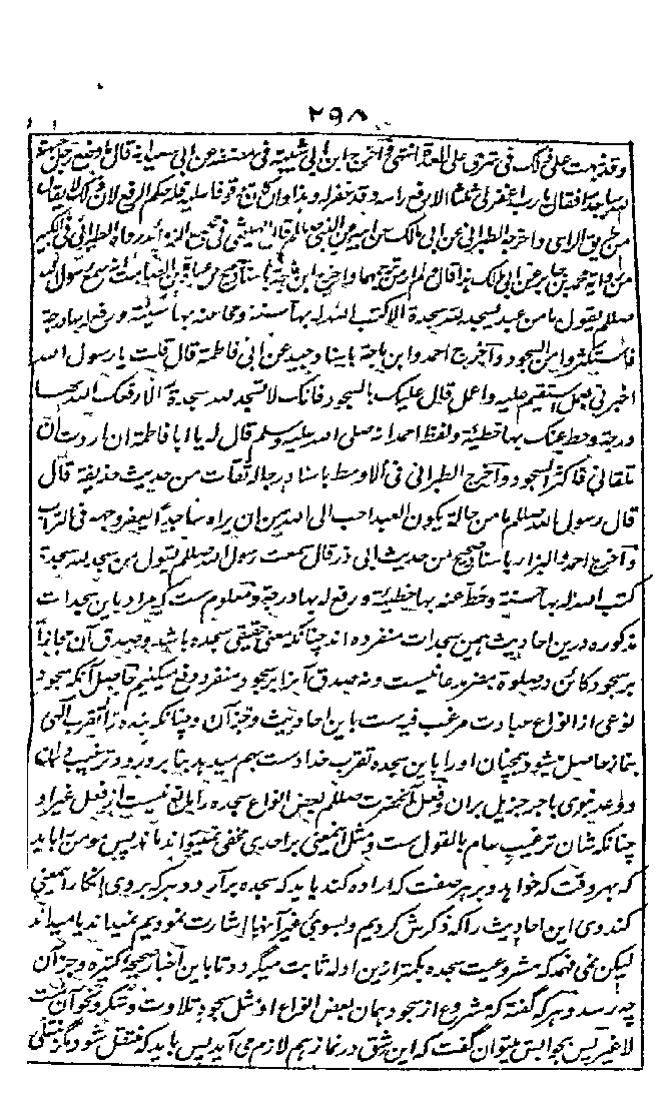 ۲۹۸
وقد نبهت على ذلك فى شرحى على العمدة انتهى واخرج ابن ابى شيبة فى مصنفه عن ابى سعيد انه قال ما وضع رجل جبهته
لله ساجدا فقال يا رب اغفرلى ثلثا الا رفع راسه وقد غفر له وهذا وان كان موقوفا عليه فله حكم الرفع لان مثل ذلك لا يقال
من طريق الراى واخرجه الطبرانى عن ابى مالك عن ابيه عن النبى صلعم قال الهيثمى فى مجمع الزوائد رواه الطبرانى فى الكبير
من رواية محمد بن جابر عن ابى مالك هذا قال ولم ار من ترجمهما واخرج ابن ماجة باسناد صحيح عن عبادة بن الصامت انه سمع رسول الله
صلعم يقول ما من عبد يسجد لله سجدة الا كتب الله له بها حسنة ومحا عنه بها سيئة ورفع له بها درجة
فاستكثروا من السجود وآخرج احمد وابن ماجة باسناد جيد عن ابى فاطمة قال قلت يا رسول الله
اخبرنى بعمل استقيم عليه واعمل قال عليك بالسجود فانك لا تسجد لله سجدة الا رفعك الله بها
درجة وحط عنك بها خطيئة ولفظ احمد انه صلى الله عليه وسلم قال له يا ابا فاطمة ان اردت ان
تلقانى فاكثر السجود وآخرج الطبرانى فى الاوسط باسناد رجاله ثقات من حديث حذيفة قال
قال رسول الله صلعم ما من حالة يكون العبد احب الى الله من ان يراه ساجدا يعفر وجهه فى التراب
وآخرج احمد والبزار باسناد صحيح من حديث ابى ذر قال سمعت رسول الله صلعم يقول من سجد لله سجدة
كتب الله له بها حسنة وحط عنه بها خطيئة ورفع له بها درجة ومعلوم ست كه مراد باين سجدات
مذكوره درين احاديث همين سجدات منفرده اند چنانكه معنى حقيقى سجده باشد وصدق آن مجازا
بر سجود كائن در صلوة مضر مدعا نيست ونه صدق آنرا بر سجود منفرد دفع ميكنيم حاصل آنكه سجود
نوعى از انواع عبادت مرغب فيه ست باين احاديث وجز آن وچنانكه بنده را تقرب الهى
بنماز حاصل ميشود همچنان او را باين سجده تقرب خدا دست بهم ميدهد بنا بر ورود ترغيب دران
ووعد نبوى باجر جزيل بران وفعل آنحضرت صلعم بعض انواع سجده را مانع نيست از فعل غير او
چنانكه شان ترغيب عام بالقول ست ومثل اينمعنى بر احدى مخفى نميتواند ماند پس مومن را بايد
كه بهر وقت كه خواهد وبر هر صفت كه اراده كند بايد كه سجده برآرد وهر كه بروى انكار اينمعنى
كند وى اين احاديث را كه ذكرش كرديم وبسوى غير آنها اشارت نموديم نميداند يا ميداند
ليكن نمى فهمد كه مشروعيت سجده بكمتر ازين ادله ثابت ميگردد تا باين اخبار صحيحه كثيره وجز آن
چه رسد وهر كه گفته كه مشروع از سجود همان بعض انواع او مثل سجود تلاوت وشكر ونحو آن ست
لا غير پس بجوابش ميتوان گفت كه اين شق در نماز هم لازم مى آيد پس بايد كه متنفل نشود مگر بنفلى